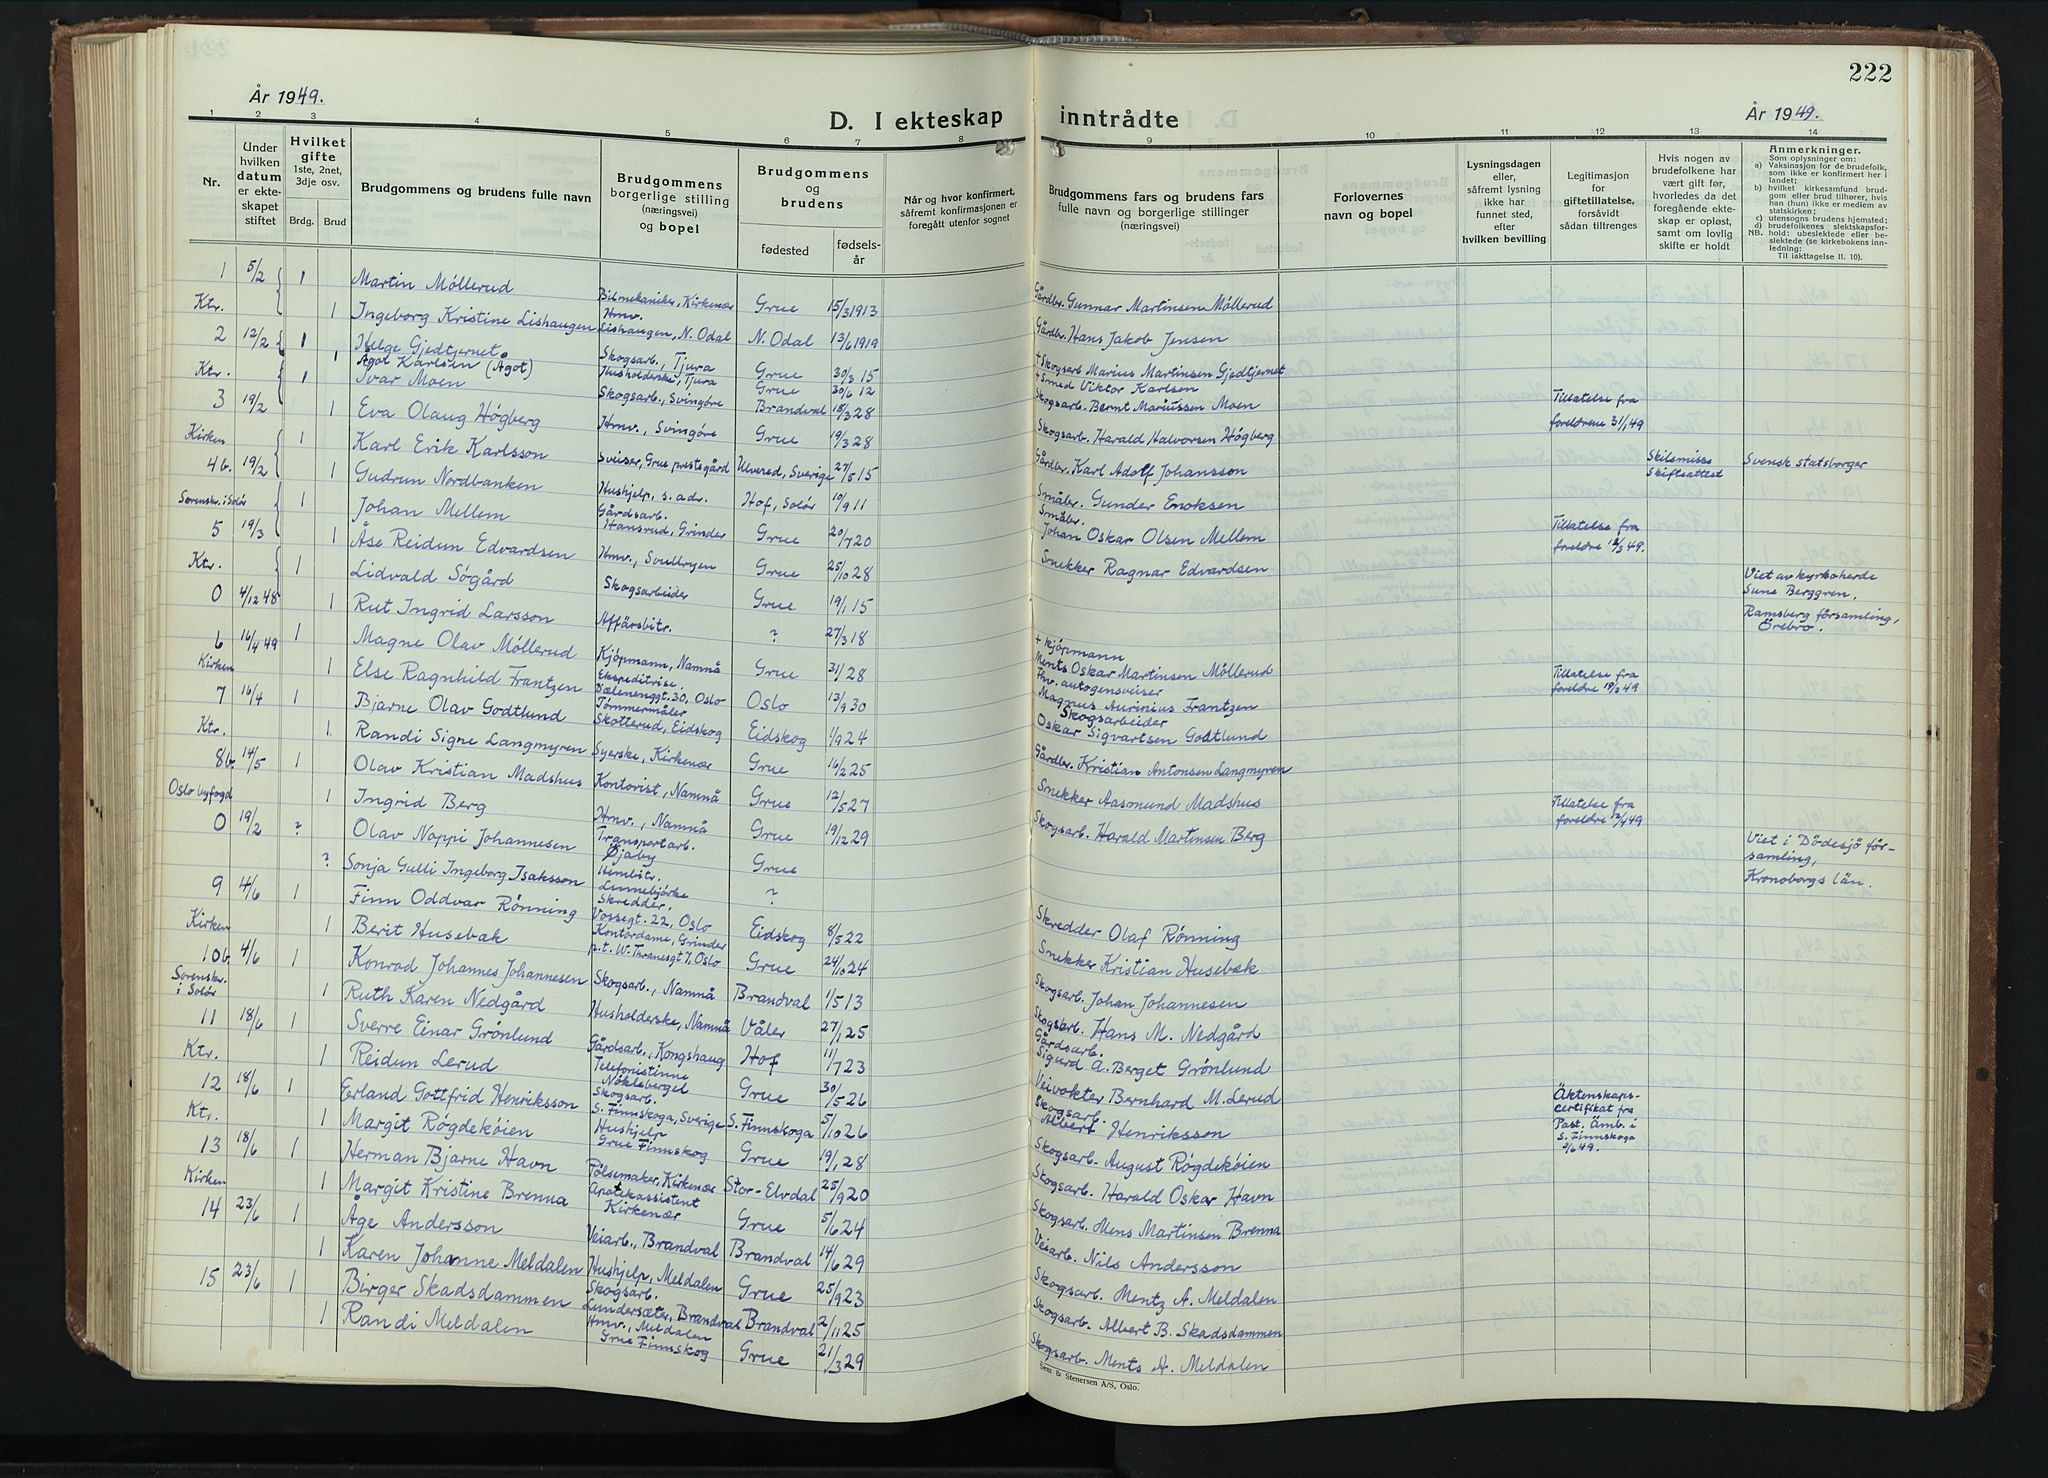 222
År 1949.
D. I ekteskap inntrådte
År 1949.
1 2 3 4 5 6 7 8 9 10 11 12 13 14
Nr.
Under hvilken datum er ekteskapet stiftet
Hvilket gifte 1ste, 2net, 3dje osv.
Brdg. Brud
Brudgommens og brudens fulle navn
Brudgommens borgerlige stilling (næringsvei) og bopel
Brudgommens og brudens
fødested
fødselsår
Når og hvor konfirmert, såfremt konfirmasjonen er foregått utenfor sognet
Brudgommens fars og brudens fars fulle navn og borgerlige stillinger (næringsvei)
Forlovernes navn og bopel
Lysningsdagen eller, såfremt lysning ikke har funnet sted, efter hvilken bevilling
Legitimasjon for giftetillatelse, forsåvidt sådan tiltrenges
Hvis nogen av brudefolkene har vært gift før, hvorledes da det foregående ekteskap er opløst, samt om lovlig skifte er holdt
Anmerkninger.
Som oplysninger om:
a) Vaksinasjon for de brudefolk, som ikke er konfirmert her i landet;
b) hvilket kirkesamfund brudgom eller brud tilhører, hvis han (hun) ikke er medlem av statskirken;
c) utensogns brudens hjemsted;
d) brudefolkenes slektskapsforhold: ubeslektede eller beslektede (se kirkebokens innledning:
NB.
Til iakttagelse II. 10).
1 5/2 1 Martin Möllerud Bilmekaniker, Kirkenær Grue 15/3 1913 Gårdbr. Gunnar Martinsen Möllerud
Ktr. 1 Ingeborg Kristine Lishaugen Hmv. Lishaugen, N. Odal N. Odal 13/6 1919 Gårdbr. Hans Jakob Jensen
2 12/2 1 Helge Gjedtjernet Skogsarb., Tjura Grue 30/3 15 + Skogsarb Marius Martinsen Gjedtjernet
Ktr. 1 Agot Karlsen (Ågot) Husholderske, Tjura Grue 30/6 12 + Smed Viktor Karlsen
3 19/2 1 Ivar Moen Skogsarb., Svingöre Brandval 18/3 28 Skogsarb. Bernt Mariussen Moen Tillatelse fra foreldrene 31/1 49
Kirken 1 Eva Olaug Högberg Hmv., Svingöre Grue 19/3 28 Skogsarb. Harald Halvorsen Högberg
4b. 19/2 1 Karl Erik Karlsson Sveiser, Grue prestegård Ulvered, Sverige 27/5 15 Gårdbr. Karl Adolf Johansson Skilsmisse Skifteattest Svensk statsborger
Sorenskr. i Solör 1 Gudrun Nordbanken Hushjelp, s. adr. Hof, Solör 10/9 11 Småbr. Gunder Enoksen
5 19/3 1 Johan Mellem Gårdsarb. Hansrud, Grinder Grue 20/7 20 Småbr. Johan Oskar Olsen Mellem Tillatelse fra foreldre 12/3 49.
Ktr. 1 Åse Reidun Edvardsen Hmv., Svullryen Grue 25/10 28 Snekker Ragnar Edvardsen
0 4/12 48 1 Lidvald Sögård Skogsarbeider Grue 19/1 15 Viet av kyrkoherde Sune Berggren, Ramsberg församling, Örebro.
1 Rut Ingrid Larsson Affärsbitr. ? 27/3 18
6 16/4 49 1 Magne Olav Möllerud Kjöpmann, Namnå Grue 31/1 28 + kjöpmann Ments Oskar Martinsen Möllerud Tillatelse fra foreldre 19/3 49
Kirken 1 Else Ragnhild Frantzen Ekspeditrise, Dælenenggt. 30, Oslo Oslo 13/9 30 Fhv. autogensveiser Magnus Aurinius Frantzen
7 16/4 1 Bjarne Olav Godtlund Tömmermåler Skotterud, Eidskog Eidskog 1/9 24 Skogsarbeider Oskar Sigvartsen Godtlund
Ktr. 1. Randi Signe Langmyren Syerske, Kirkenær Grue 16/2 25 Gårdbr. Kristian Antonsen Langmyren
8b. 14/5 1 Olav Kristian Madshus Kontorist, Namnå Grue 12/5 27 Snekker Aasmund Madshus Tillatelse fra foreldre 12/4 49
Oslo byfogd 1 Ingrid Berg Hmv., Namnå Grue 19/12 29 Skogsarb. Harald Martinsen Berg
0 19/2 ? Olav Noppi Johannesen Transportarb. Öjaby Grue Viet i Dödesjö församling, Kronobergs län.
? Sonja Gulli Ingeborg Isaksson Hembitr. Linnebjörke ?
9 4/6 1 Finn Oddvar Rönning Skredder, Vossegt. 22, Oslo Eidskog 8/5 22 Skredder Olaf Rönning
Kirken 1 Berit Husebæk Kontordame, Grinder p.t. W. Thranesgt 7, Oslo Grue 24/10 24 Snekker Kristian Husebæk
10b 4/6 1 Konrad Johannes Johannesen Skogsarb., Namnå Brandval 1/5 13 Skogsarb. Johan Johannesen
Sorenskr. i Solör 1 Ruth Karen Nedgård Husholderske, Namnå Våler 27/1 25 Skogsarb. Hans M. Nedgård
11 18/6 1 Sverre Einar Grönlund Gårdsarb., Kongshaug Hof 11/7 23 Gårdsarb. Sigurd A. Berget Grönlund
Ktr. 1 Reidun Lerud Telefonistinne Nöklebergel Grue 30/5 26 Veivokter Bernhard M. Lerud
12 18/6 1 Erland Gottfrid Henriksson Skogsarb. S. Finnskoga, Sverige S. Finnskoga 5/10 26 Skogsarb. Albert Henriksson Äktenskapscertifikat fra Past. Ämb. i S. Finnskoga 3/6 49.
Ktr. 1 Margit Rögdeköien Hushjelp Grue Finnskog Grue 19/1 28 Skogsarb. August Rögdeköien
13 18/6 1 Herman Bjarne Havn Pölsemaker, Kirkenær Stor-Elvdal 25/9 20 Skogsarb. Harald Oskar Havn
Kirken 1 Margit Kristine Brenna Apotekassistent Kirkenær Grue 5/6 24 Skogsarb. Mens Martinsen Brenna
14 23/6 1 Åge Andersson Veiarb., Brandval Brandval 14/6 29 Veiarb. Nils Andersson
1 Karen Johanne Meldalen Hushjelp, Meldalen Grue 25/9 23 Skogsarb. Mentz A. Meldalen
15 23/6 1 Birger Skadsdammen Skogsarb. Lundersæter, Brandval Brandval 2/11 25 Skogsarb. Albert B. Skadsdammen
1 Randi Meldalen Hmv., Meldalen Grue Finnskog Grue 21/3 29 Skogsarb. Ments A. Meldalen
Sem & Stenersen A/S, Oslo.